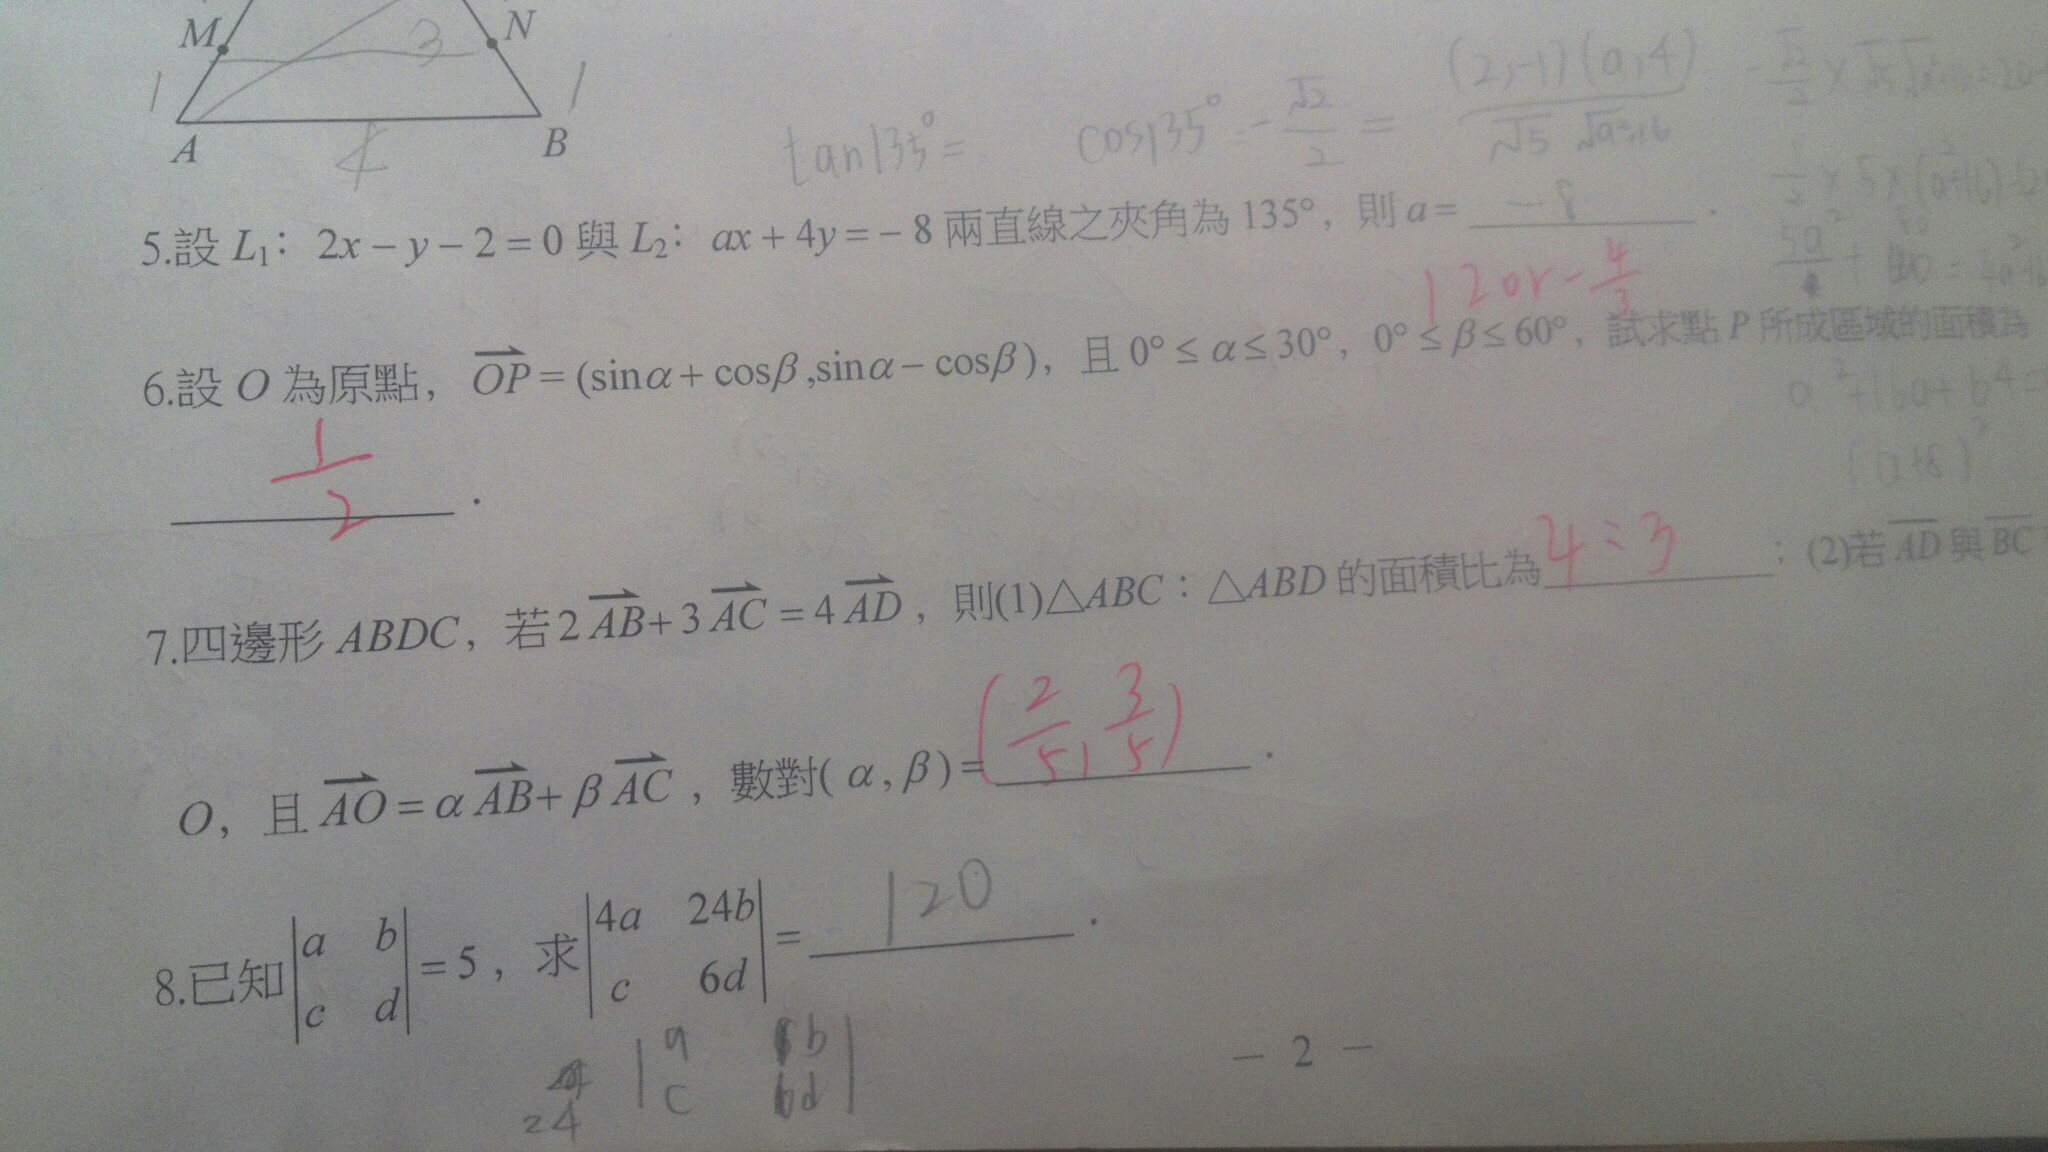 M
3
N
1
1
A
4
B
tan135°=
cos135°=-√2/2=(2,-1)(a,4)/√5 √a²+16
5.設 L₁：2x－y－2＝0 與 L₂：ax＋4y＝－8 兩直線之夾角為 135°，則 a＝ －8 .
12 or -4/3
6.設 O 為原點，OP⃗＝(sinα＋cosβ,sinα－cosβ)，且 0°≤α≤30°，0°≤β≤60°，試求點 P 所成區域的面積為
1/2 .
(a+8)²
7.四邊形 ABDC，若2AB⃗+3AC⃗＝4AD⃗，則(1)△ABC：△ABD 的面積比為 4:3 ；(2)若A̅D̅與B̅C̅
O，且AO⃗＝αAB⃗+βAC⃗，數對(α,β)＝(2/5,3/5) .
8.已知|a b; c d|＝5，求|4a 24b; c 6d|＝ 120 .
24 |a b; c d|
－ 2 －